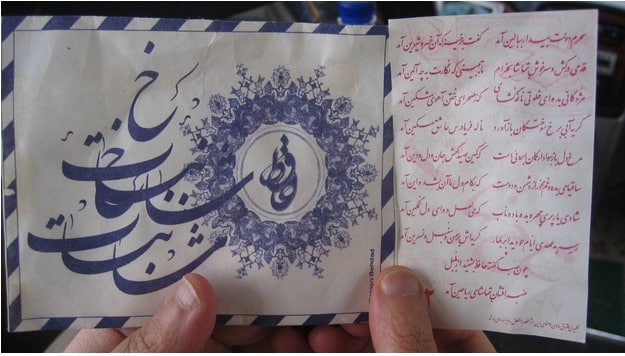 حافظ
شاخ نبات
Bohdad
سحرم دولت بیدار ببالین آمد گفت برخیز که آن خسرو شیرین آمد
قدحی درکش و سرخوش بتماشا بخرام تا ببینی که نگارت به چه آیین آمد
مژدگانی بده ای خلوتی نافه گشای که ز صحرای ختن آهوی مشکین آمد
گریه آبی برخ سوختگان بازآورد ناله فریادرس عاشق مسکین آمد
مرغ دل باز هوادار کمان ابرویی است که کمین صیدگهش جان و دل و دین آمد
ساقیا می بده و غم مخور از دشمن و دوست که بکام دل ما آن بشد و این آمد
شادی یار پری چهره بده باده ناب که می لعل دوای دل غمگین آمد
رسم بدعهدی ایام چو دید ابر بهار گریه‌اش بر سمن و سنبل و نسرین آمد
چون صبا گفته حافظ بشنید از بلبل
عنبر افشان بتماشای ریاحین آمد